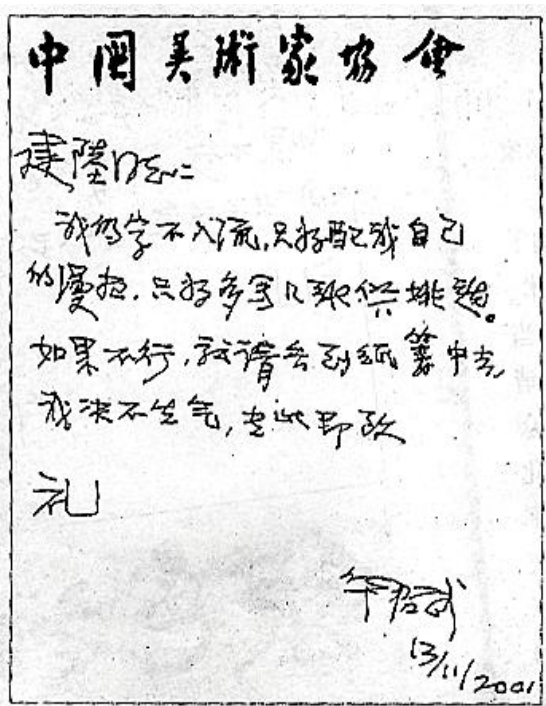 中国美術家协会
建陸同志:
我的字不入流,只好配我自己
的漫画.只好多写几张供挑选。
如果不行,就请丢到纸篓中去,
我决不生气,专此即致
礼
13/11/2001